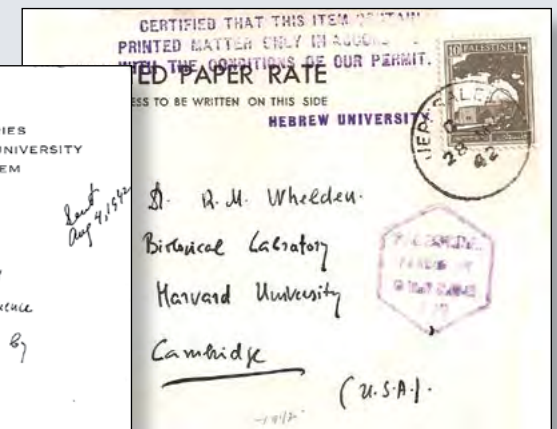 CERTIFIED THAT THIS ITEM
PRINTED MATTER ONLY IN
WITH THE CONDITIONS OF OUR PERMIT.
ED PAPER RATE
ESS TO BE WRITTEN ON THIS SIDE
HEBREW UNIVERSITY
10 PALESTINE
JERUSALEM
28
42
D. R. M. Whelden.
Biological Labratory
Harvard University
Cambridge
(U.S.A).
IES
UNIVERSITY
EM
Sent
Aug 4, 1942
ence
By